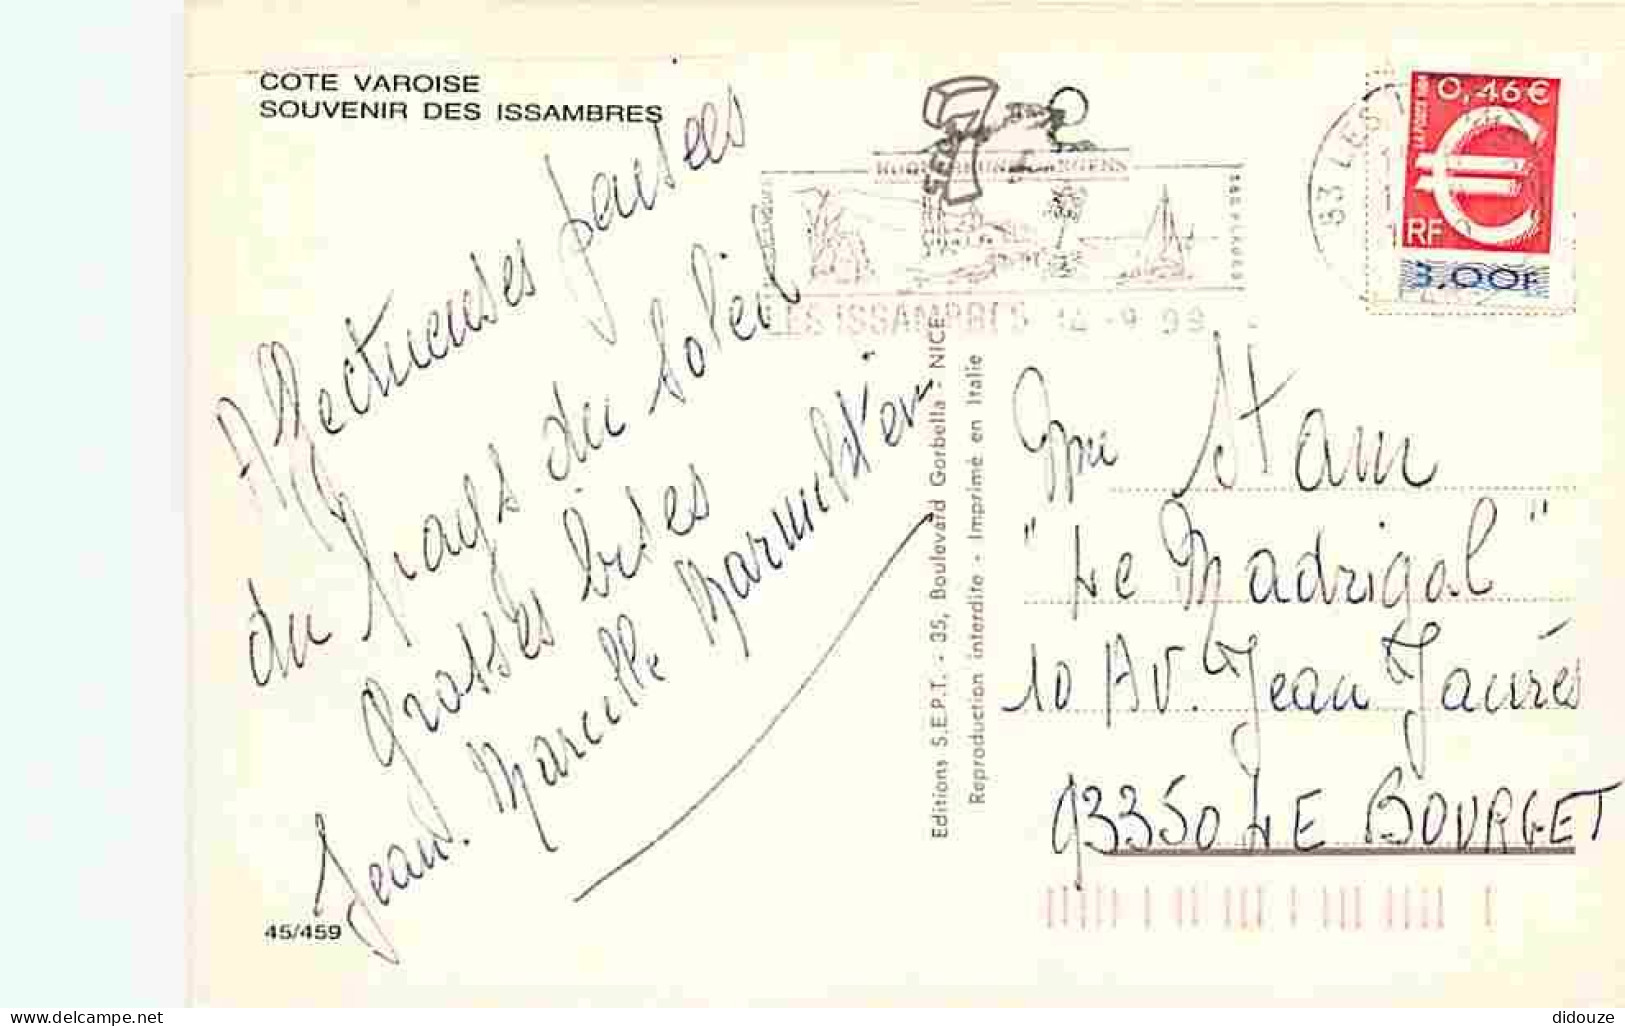 COTE VAROISE
SOUVENIR DES ISSAMBRES
Affectueuses pensées
du Pays du Soleil
Grosses bises
Jean. Marcelle Marmottier
45/459
Editions S.E.P.T. - 35, Boulevard Gorbella - NICE
Reproduction interdite - Imprimé en Italie
LES ISSAMBRES 14 -9 99
83 LES
0,46 €
LA POSTE
RF
3,00F
Mme Stam
"Le Madrigal"
10 AV. Jean Jaurès
93350 LE BOURGET
www.delcampe.net
didouze